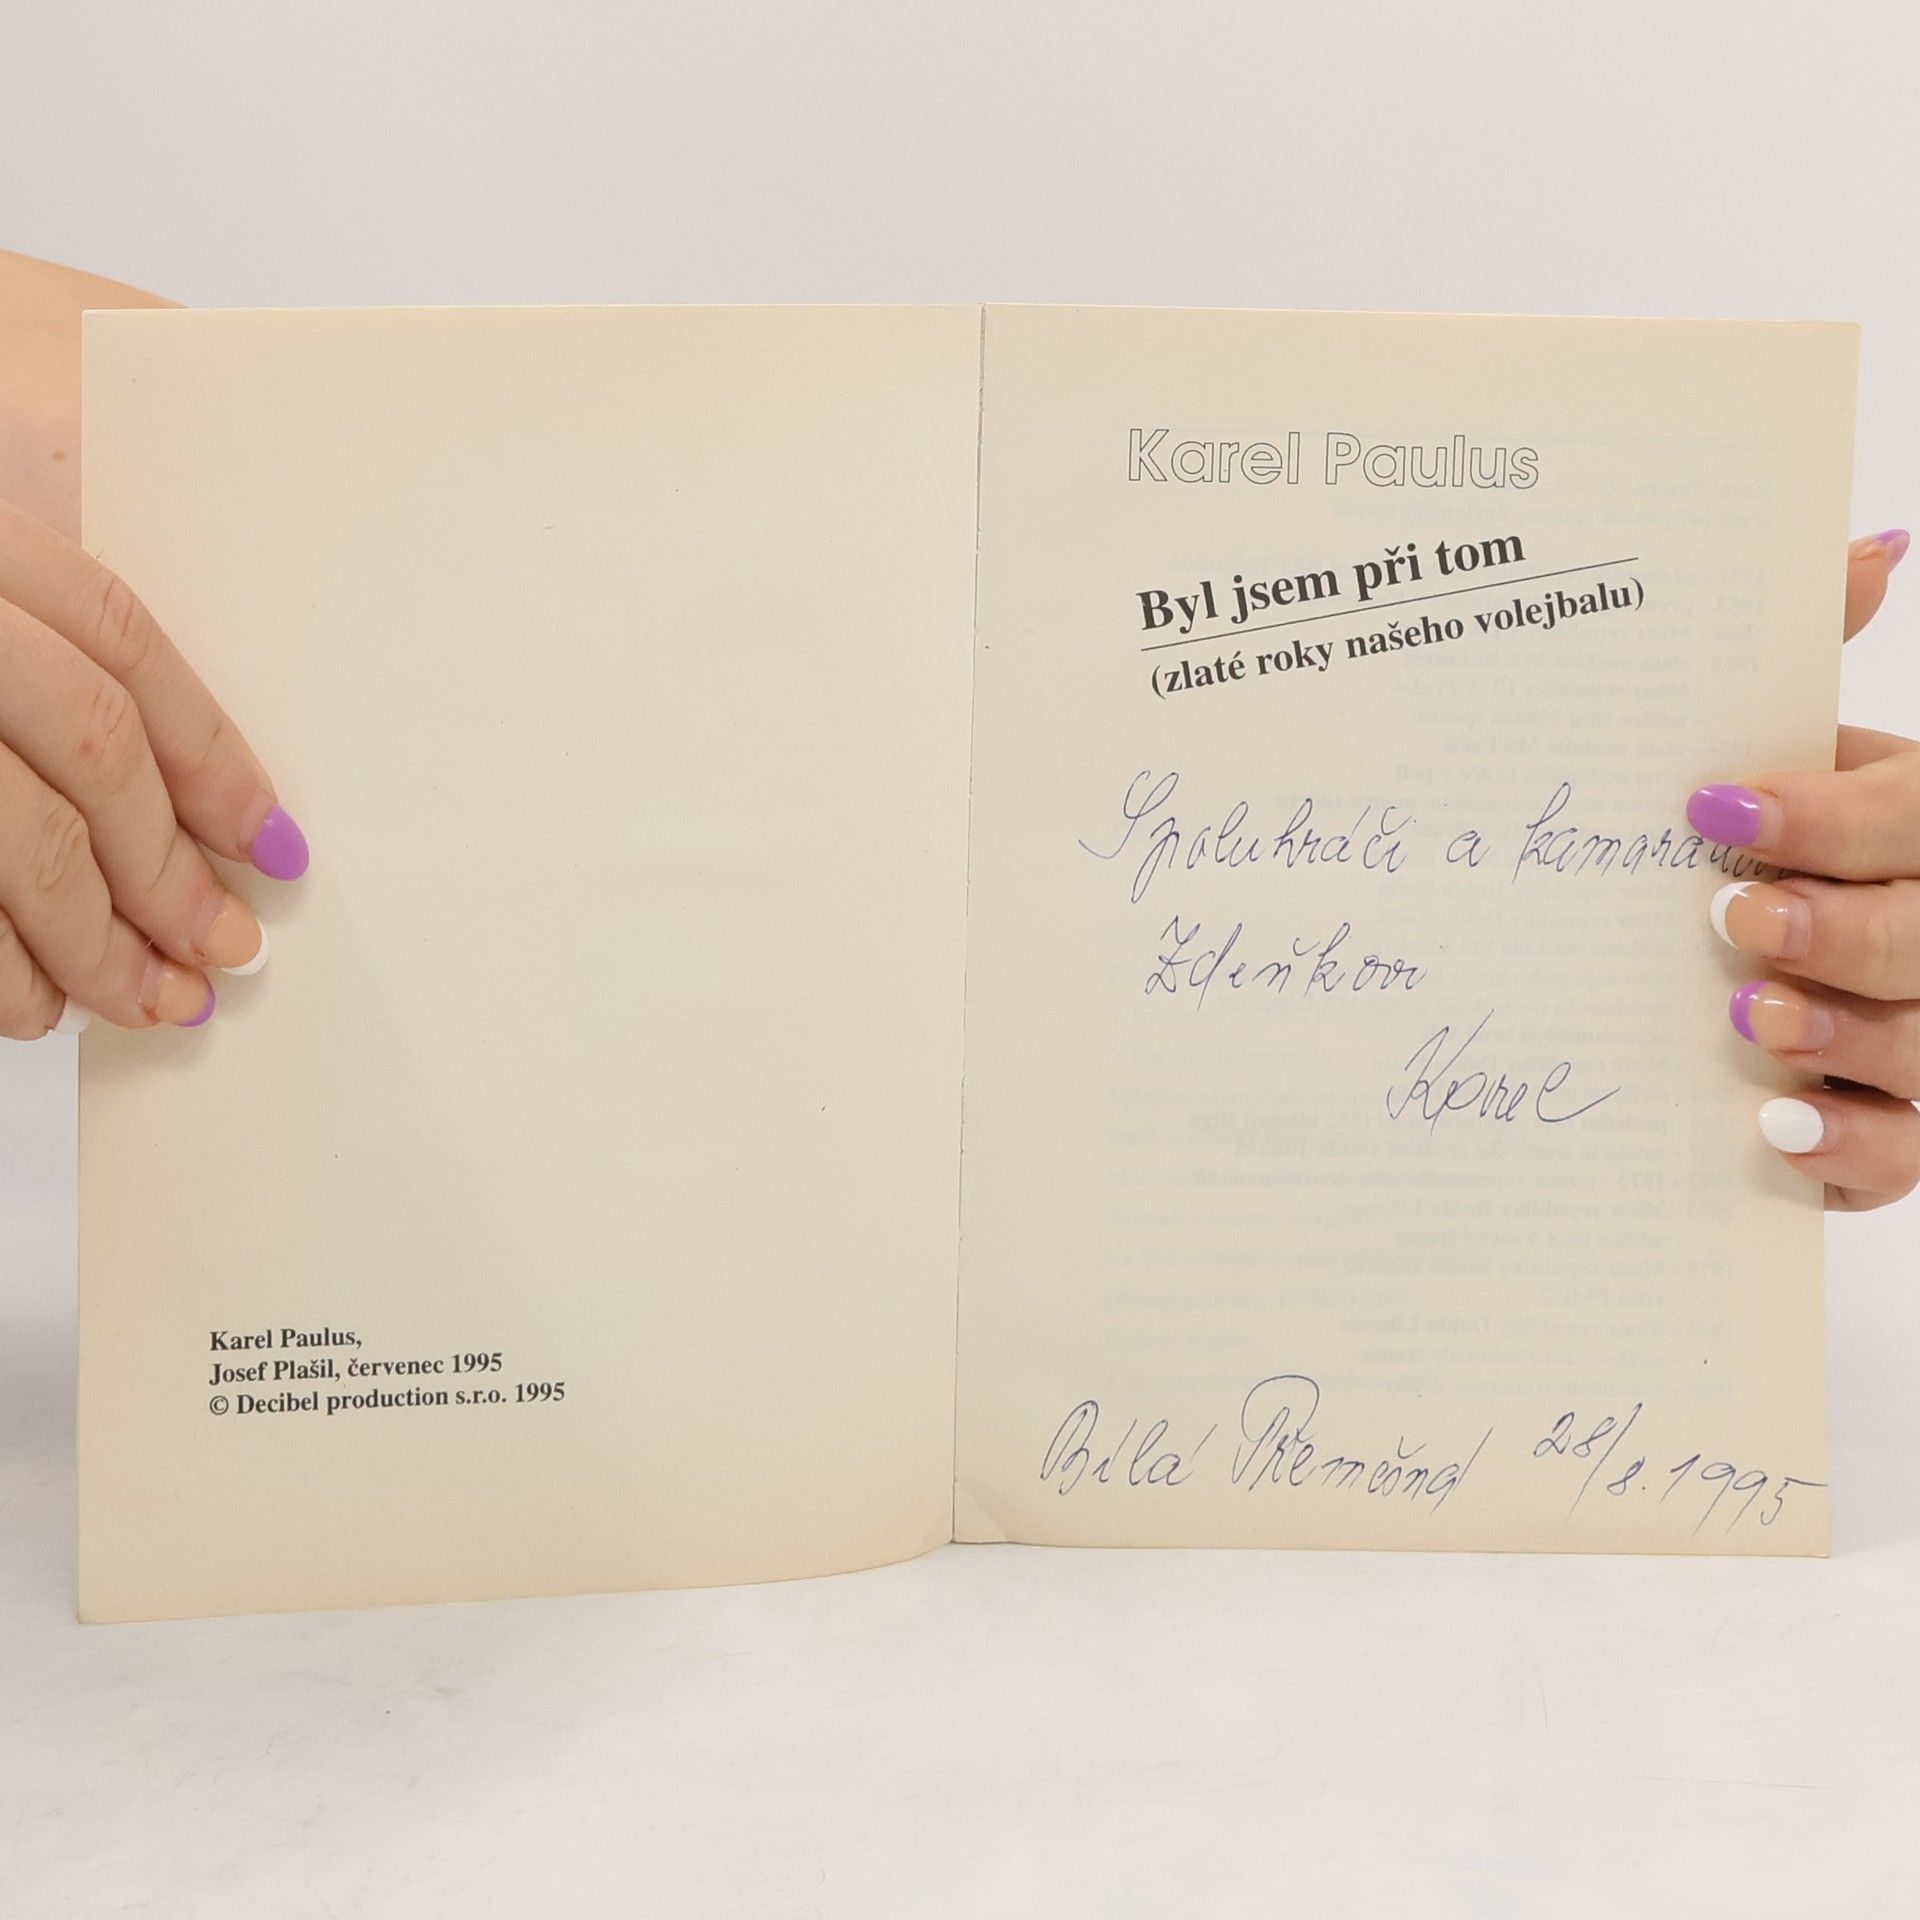 Karel Paulus,
Josef Plašil, červenec 1995
© Decibel production s.r.o. 1995
Karel Paulus
Byl jsem při tom
(zlaté roky našeho volejbalu)
Spoluhráči a
Zdeňkovi
Karel
Bílá 28/8.1995